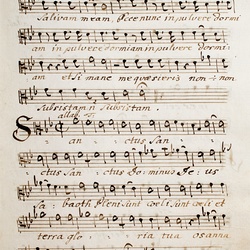 salivam meam. Ecce nunc in pulvere dormi
am in pulvere dormiam in pulvere dormi
am et si mane me quæsieris non non
subsistam ñ subsistam.
San ctus San
ctus San ctus Dominus De us
Sa baoth pleni sunt cœli sunt cœli et
terra glo ria tua osanna